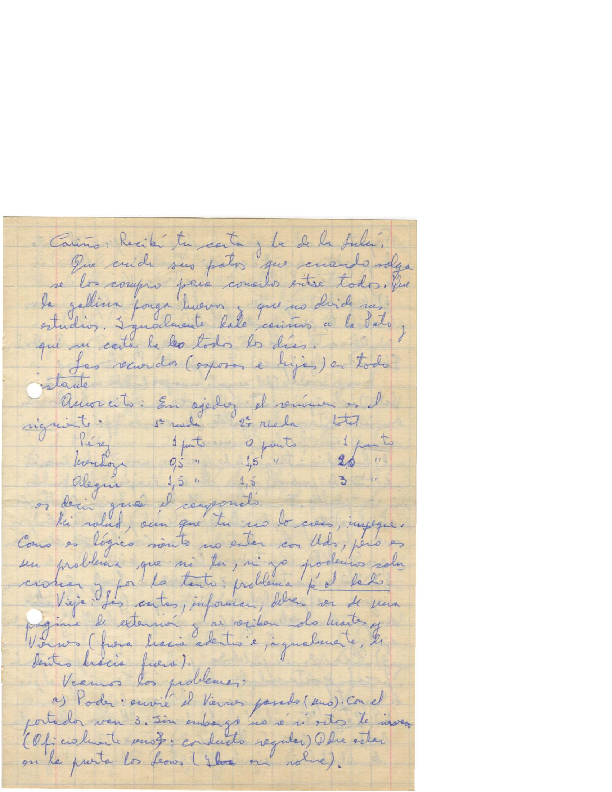 Cariño: Recibí tu carta y la de la Lulú.
Que cuide sus patos que cuando salga
se los compro para comerlos entre todos. Que
la gallina ponga huevos y que no olvide sus
estudios. Igualmente dale cariños a la Pato y
que su carta la leo todos los días.
Las recuerdos (esposa e hijas) en todo
instante
Amorcito: En ajedrez el resúmen es el
siguiente: 1ª rueda 2ª rueda total
Pérez 1 punto 0 punto 1 punto
Mendoza 0,5 " 1,5 " 2,0 "
Alegría 1,5 " 1,5 3 "
es decir gané el campeonato
Mi salud, aún que tu no lo creas, impeque.
Como es lógico siento no estar con Uds, pero es
un problema que ni tu, ni yo podemos solu
cionar y por lo tanto: problema p'al lado.
Vieja: Las cartas, informan, deben ser de una
página de extensión y se reciben los Martes y
Viernes (fuera hacia adentro e, igualmente, de
dentro hacia fuera).
Veamos los problemas:
a) Poder: envié el Viernes pasado (uno). Con el
portador van 3. Sin embargo no sé si estos te sirven
(Oficialmente uno: conducto regular) Debe estar
en la puerta los demás ( en sobre).